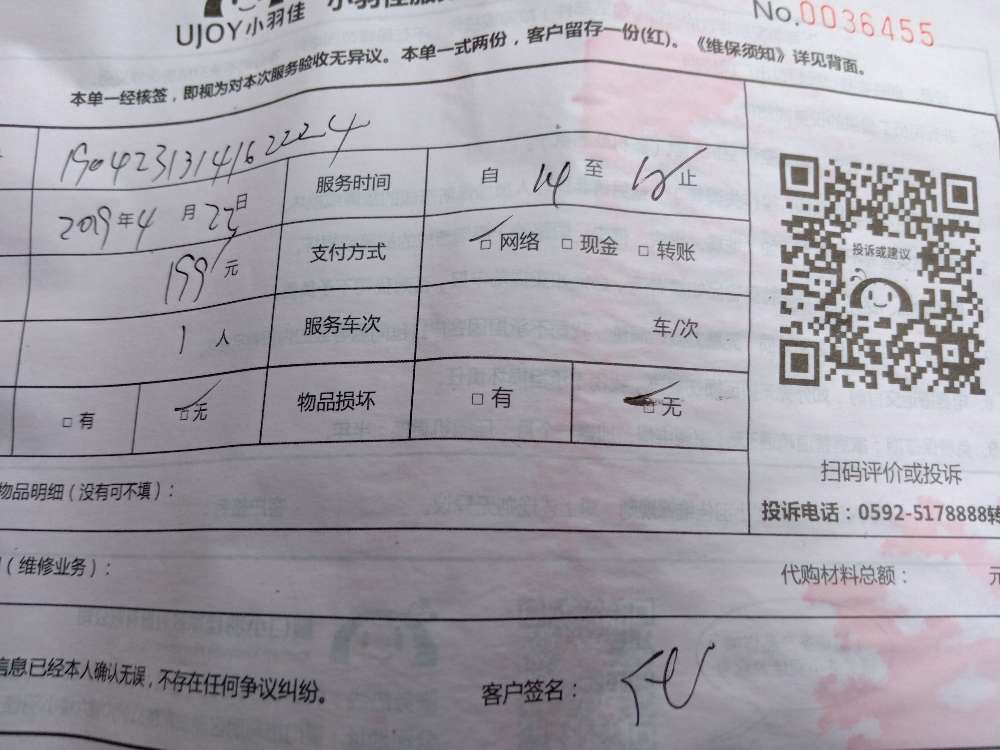 UJOY小羽佳
No.0036455
本单一经核签，即视为对本次服务验收无异议。本单一式两份，客户留存一份(红)。《维保须知》详见背面。
服务时间 自 14 至 止
2019年4月22日
支付方式 □网络 □现金 □转账
投诉或建议
199元
1人
服务车次 车/次
□有 □无 物品损坏 □有 □无
扫码评价或投诉
物品明细（没有可不填）：
投诉电话：0592-5178888转
（维修业务）：
代购材料总额： 元
信息已经本人确认无误，不存在任何争议纠纷。
客户签名：